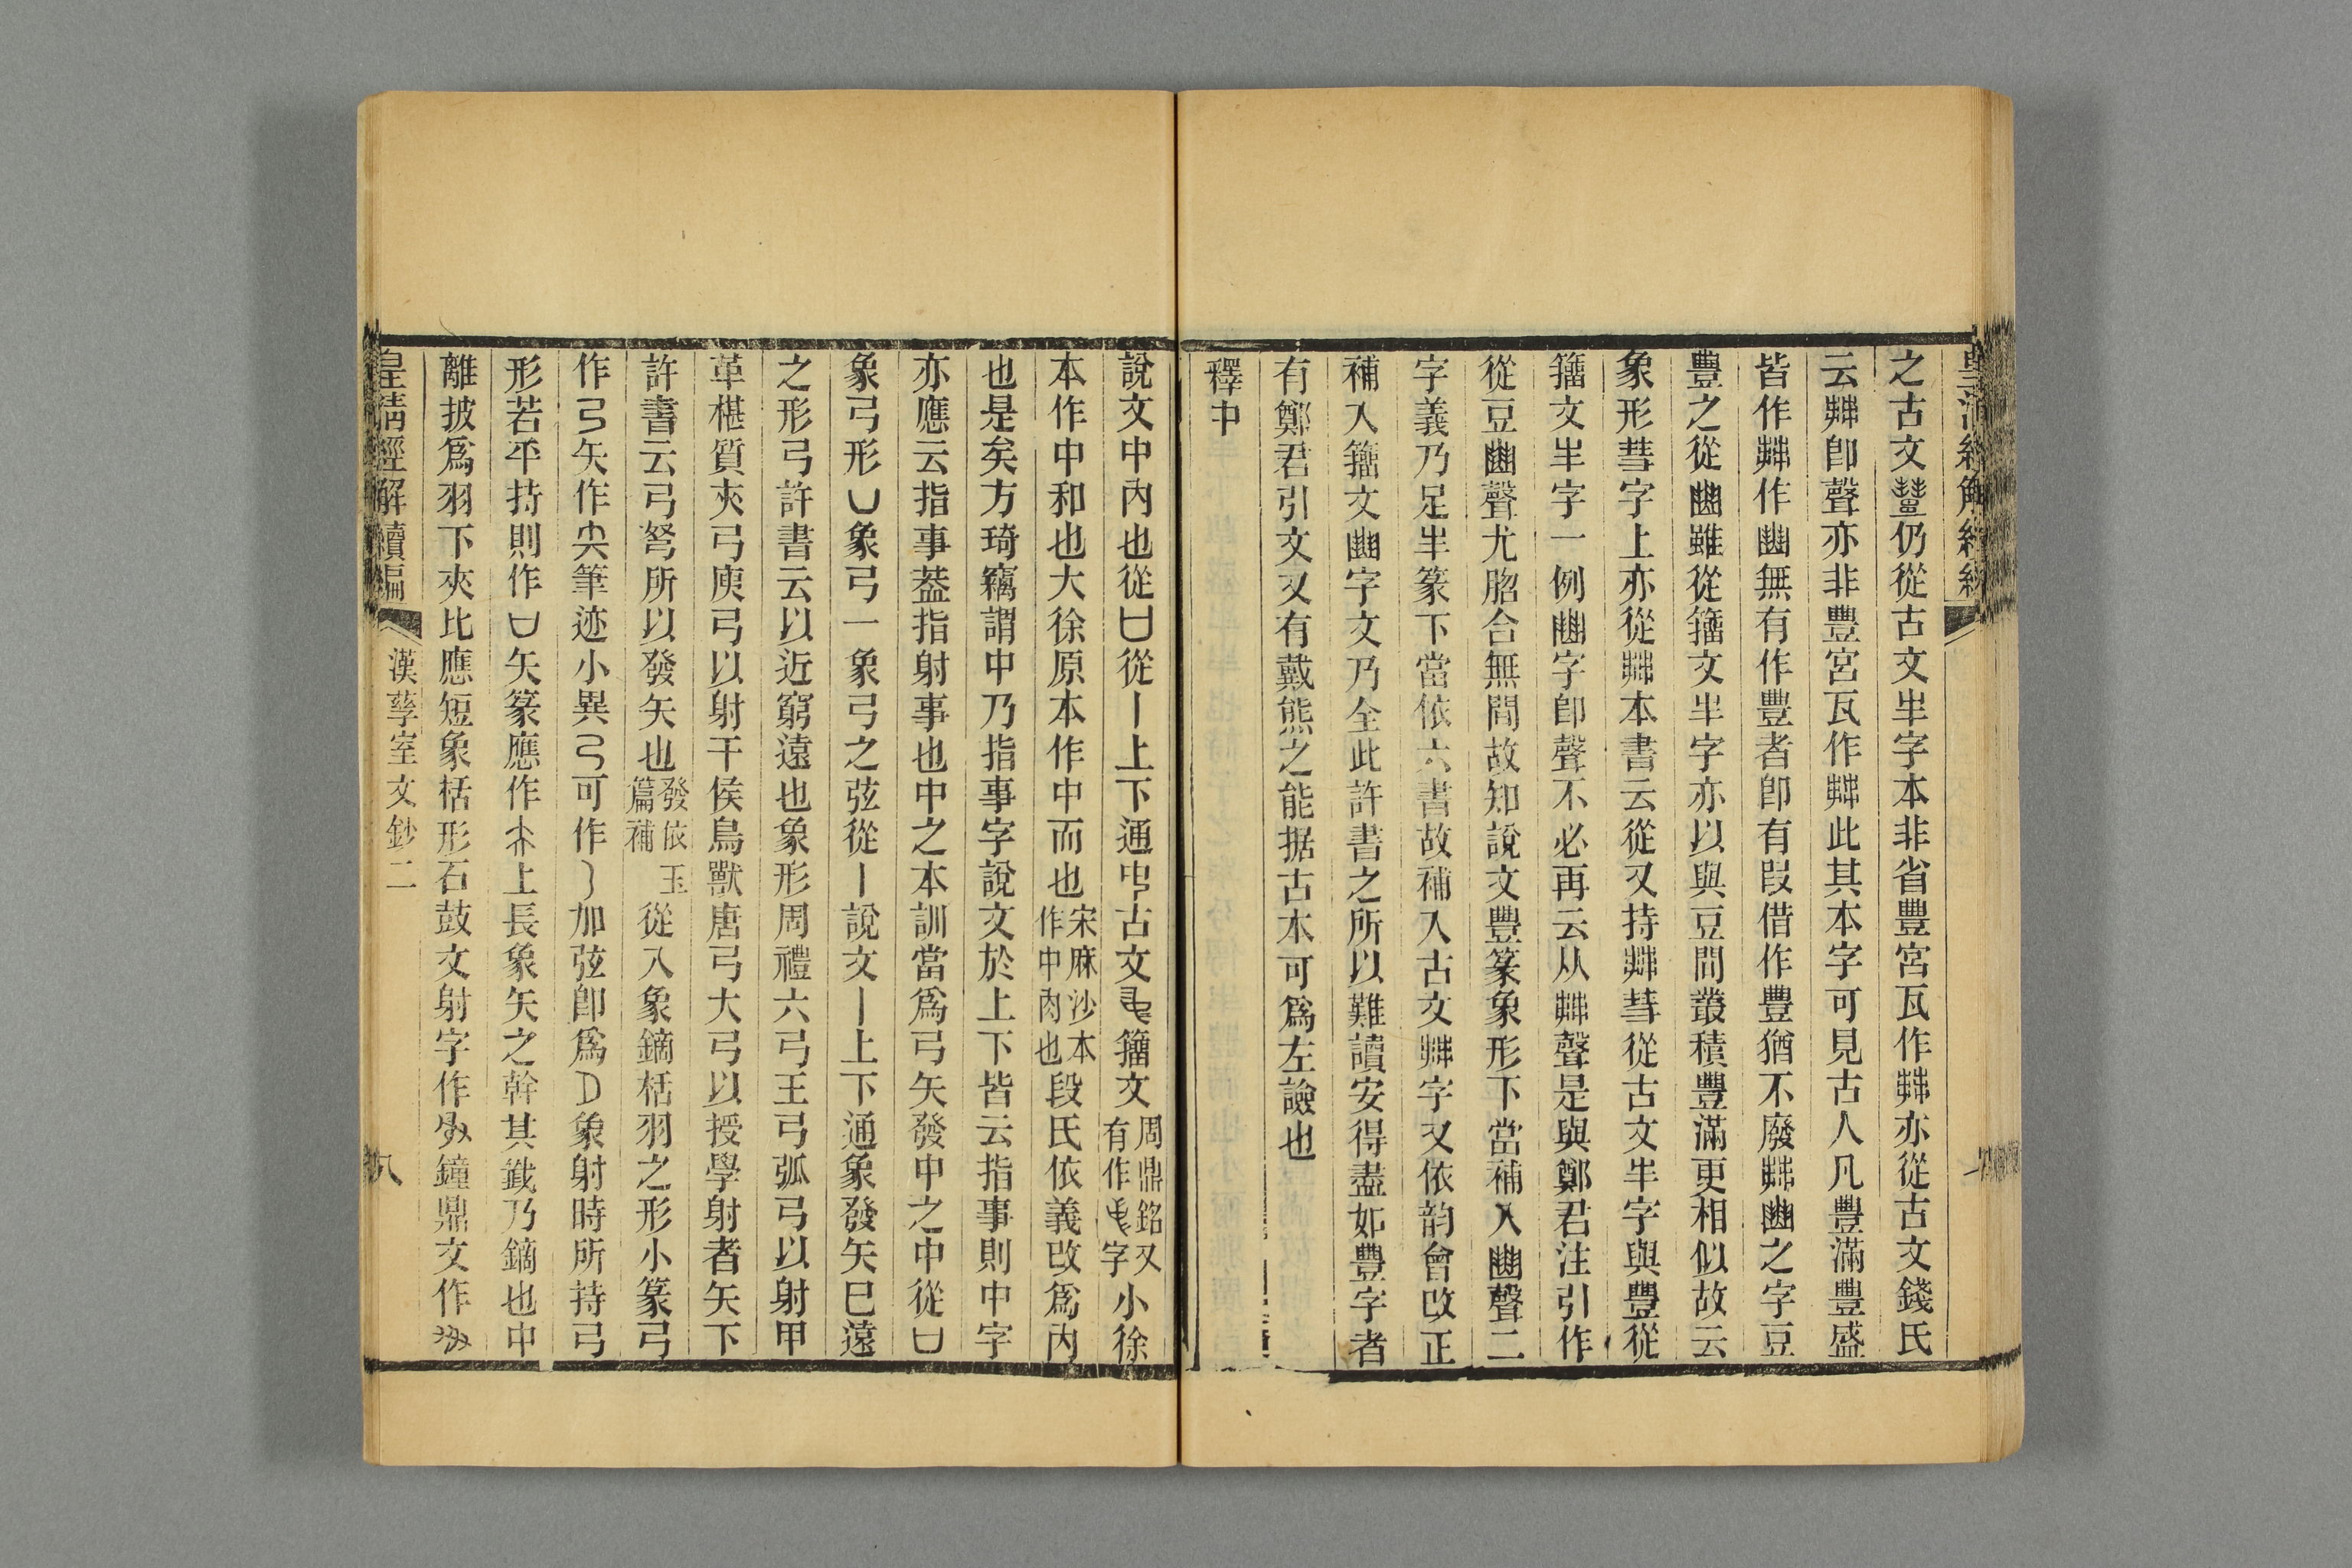 之古文豐仍從古文丰字本非省豐宮瓦作𠦒亦從古文錢氏
云𠦒卽聲亦非豐宮瓦作𠦒此其本字可見古人凡豐滿豐盛
皆作𠦒作𧯮無有作豐者卽有叚借作豐猶不廢𠦒之字豆
豐之從雖從籀文丰字亦以與豆間叢積豐滿更相似故云
象形彗字上亦從本書云從又持彗從古文丰字與豐從
籀文丰字一例字卽聲不必再云从聲是與鄭君注引作
從豆聲尤脗合無閒故知說文豐篆象形下當補入聲二
字義乃足丰篆下當依六書故補入古文字又依韵會改正
補入籀文字文乃全此許書之所以難讀安得盡如豐字者
有鄭君引文又有戴熊之能据古本可爲左譣也
釋中
說文中內也從凵從丨上下通古文籀文周鼎銘又有作字小徐
本作中和也大徐原本作中而也宋麻沙本作中肉也段氏依義改爲內
也是矣方琦竊謂中乃指事字說文於上下皆云指事則中字
亦應云指事葢指射事也中之本訓當爲弓矢發中之中從凵
象弓形凵象弓一象弓之弦從丨說文丨上下通象發矢巳遠
之形弓許書云以近窮遠也象形周禮六弓王弓弧弓以射甲
革椹質夾弓庾弓以射干侯鳥獸唐弓大弓以授學射者矢下
許書云弓弩所以發矢也發依玉篇補從入象鏑栝羽之形小篆弓
作弓矢作筆迹小異可作加弦卽爲象射時所持弓
形若平持則作凵矢篆應作上長象矢之幹其鐵乃鏑也中
離披爲羽下夾比應短象栝形石鼓文射字作鐘鼎文作
皇淸經解續編
漢孳室文鈔二
八